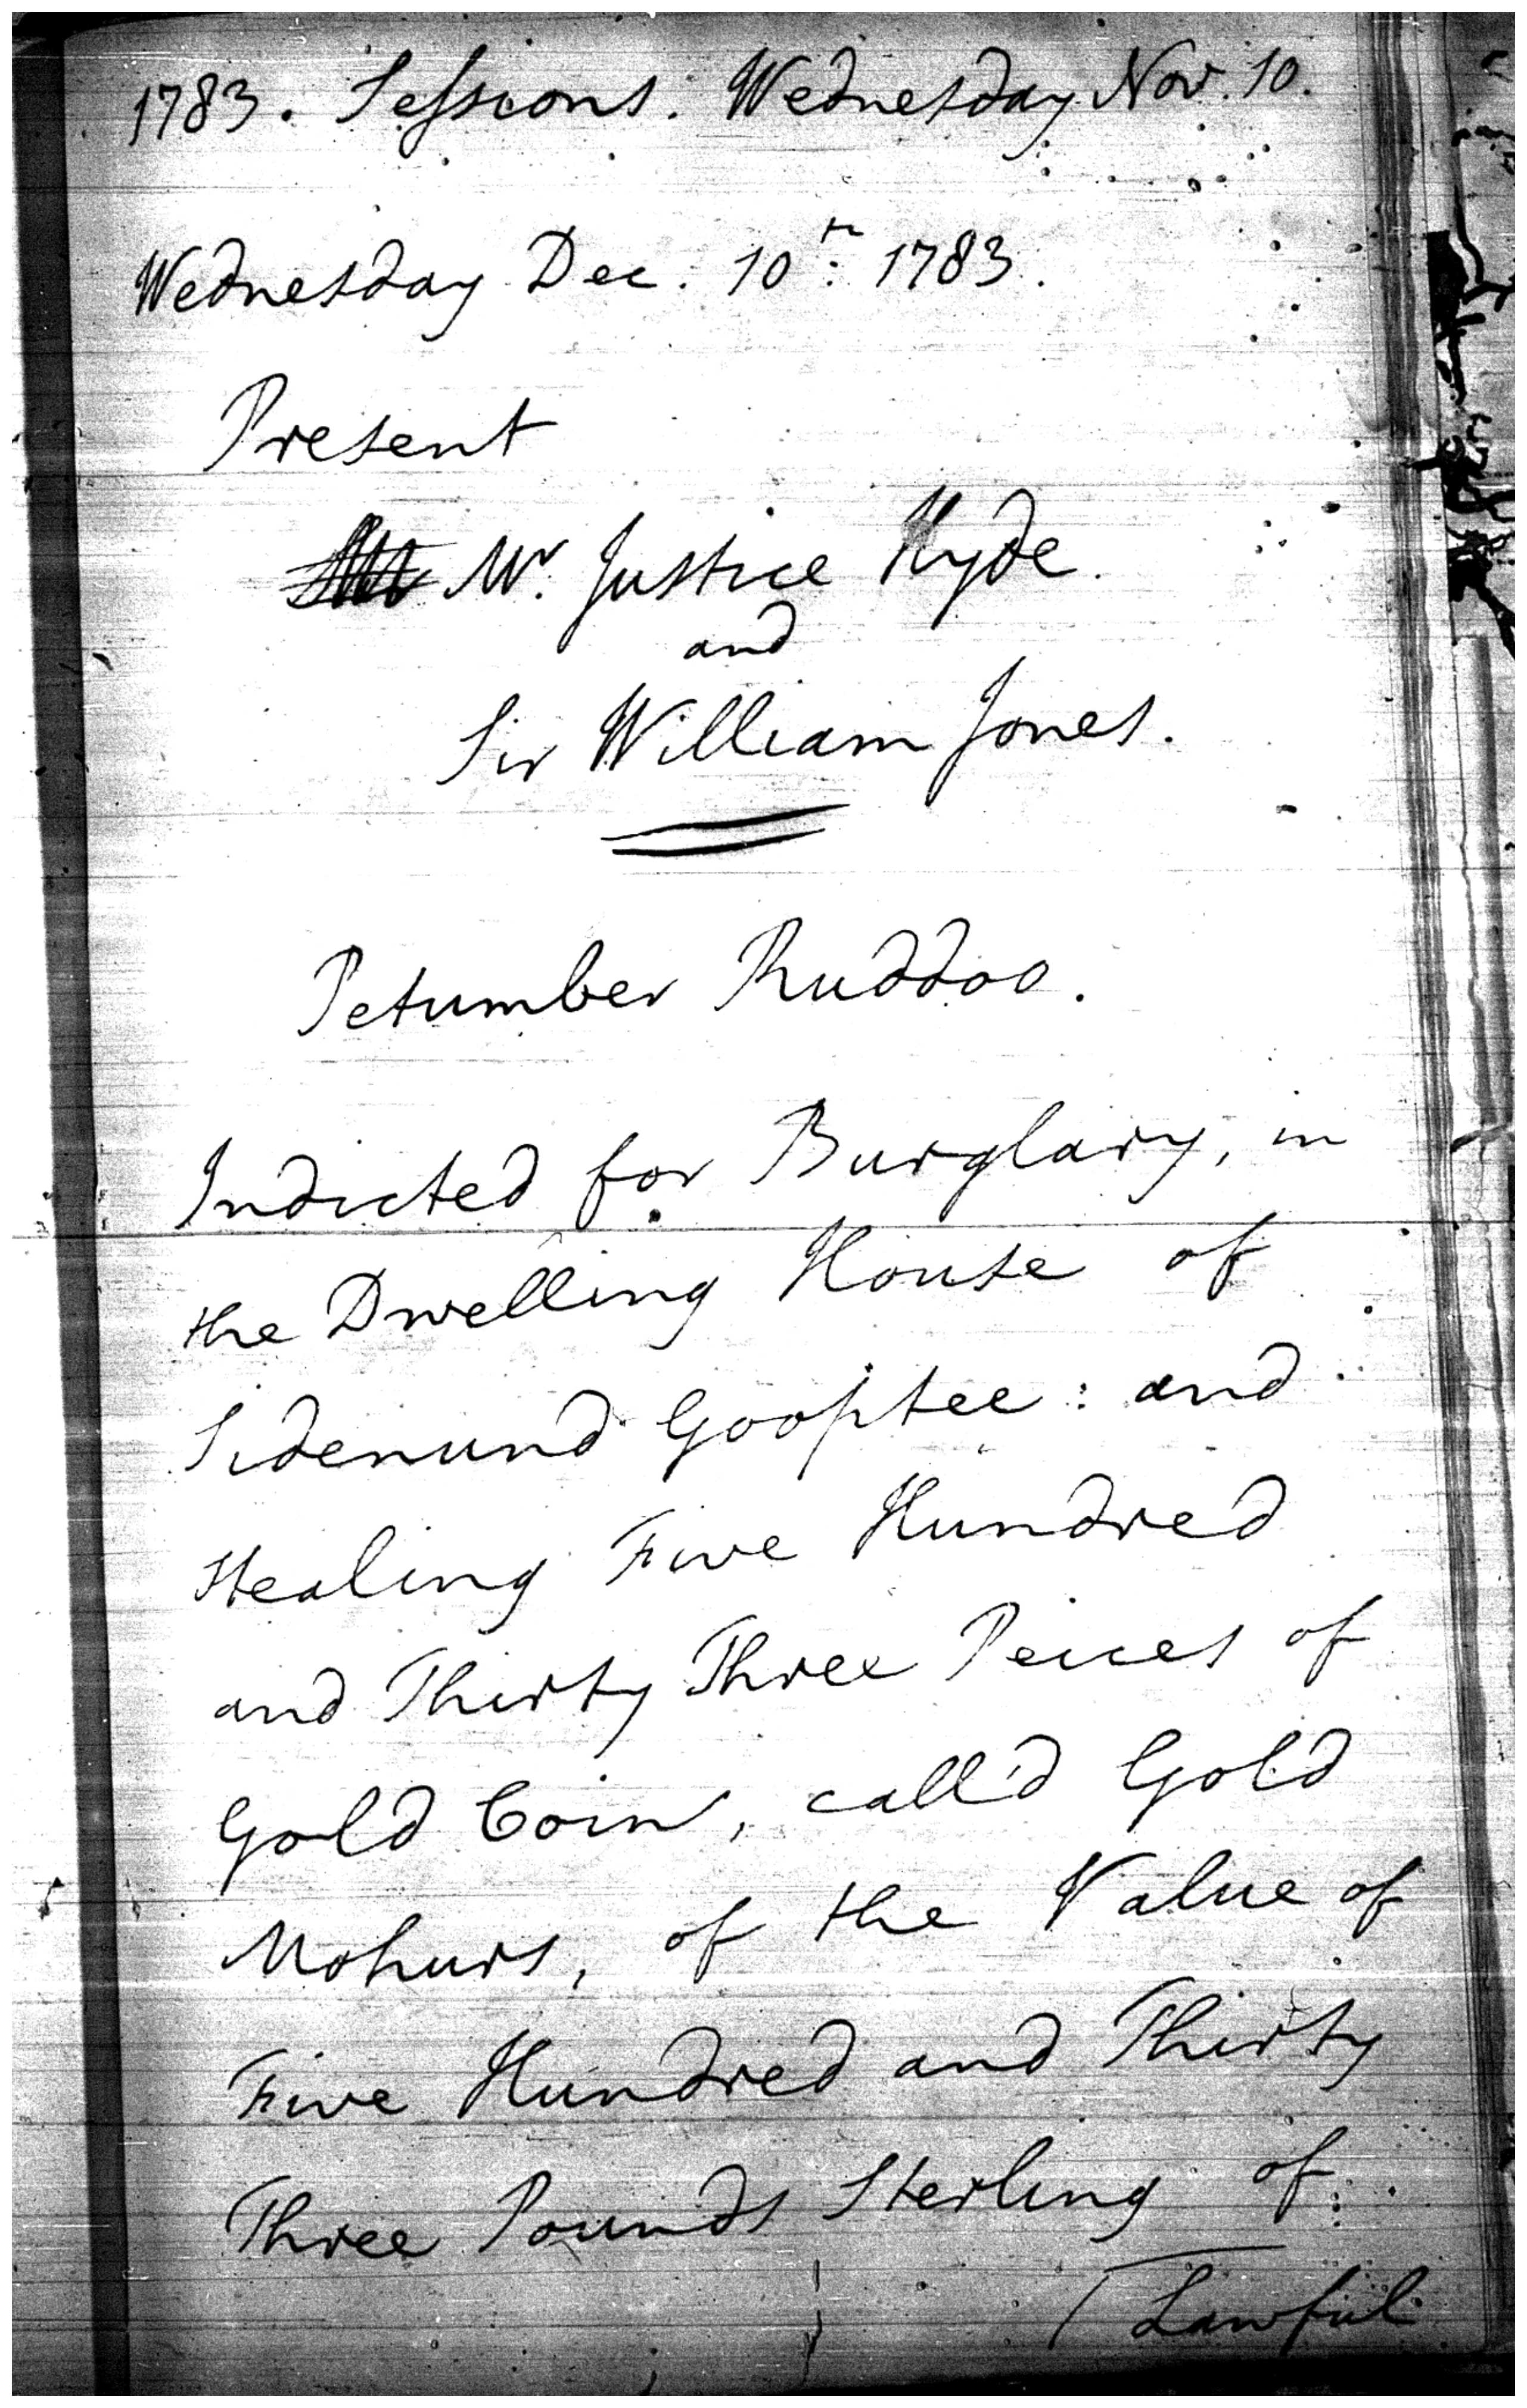 1783. Sessions. Wednesday Nov. 10.
Wednesday Dec. 10th. 1783.
Present
Mr. Justice Hyde.
and
Sir William Jones.
Petumber Ruddoo.
Indicted for Burglary, in
the Dwelling House of
Sidenund Gooptee: and
stealing Five Hundred
and Thirty Three Peices of
Gold Coin, call'd Gold
Mohurs, of the Value of
Five Hundred and Thirty
Three Pounds Sterling of
Lawful